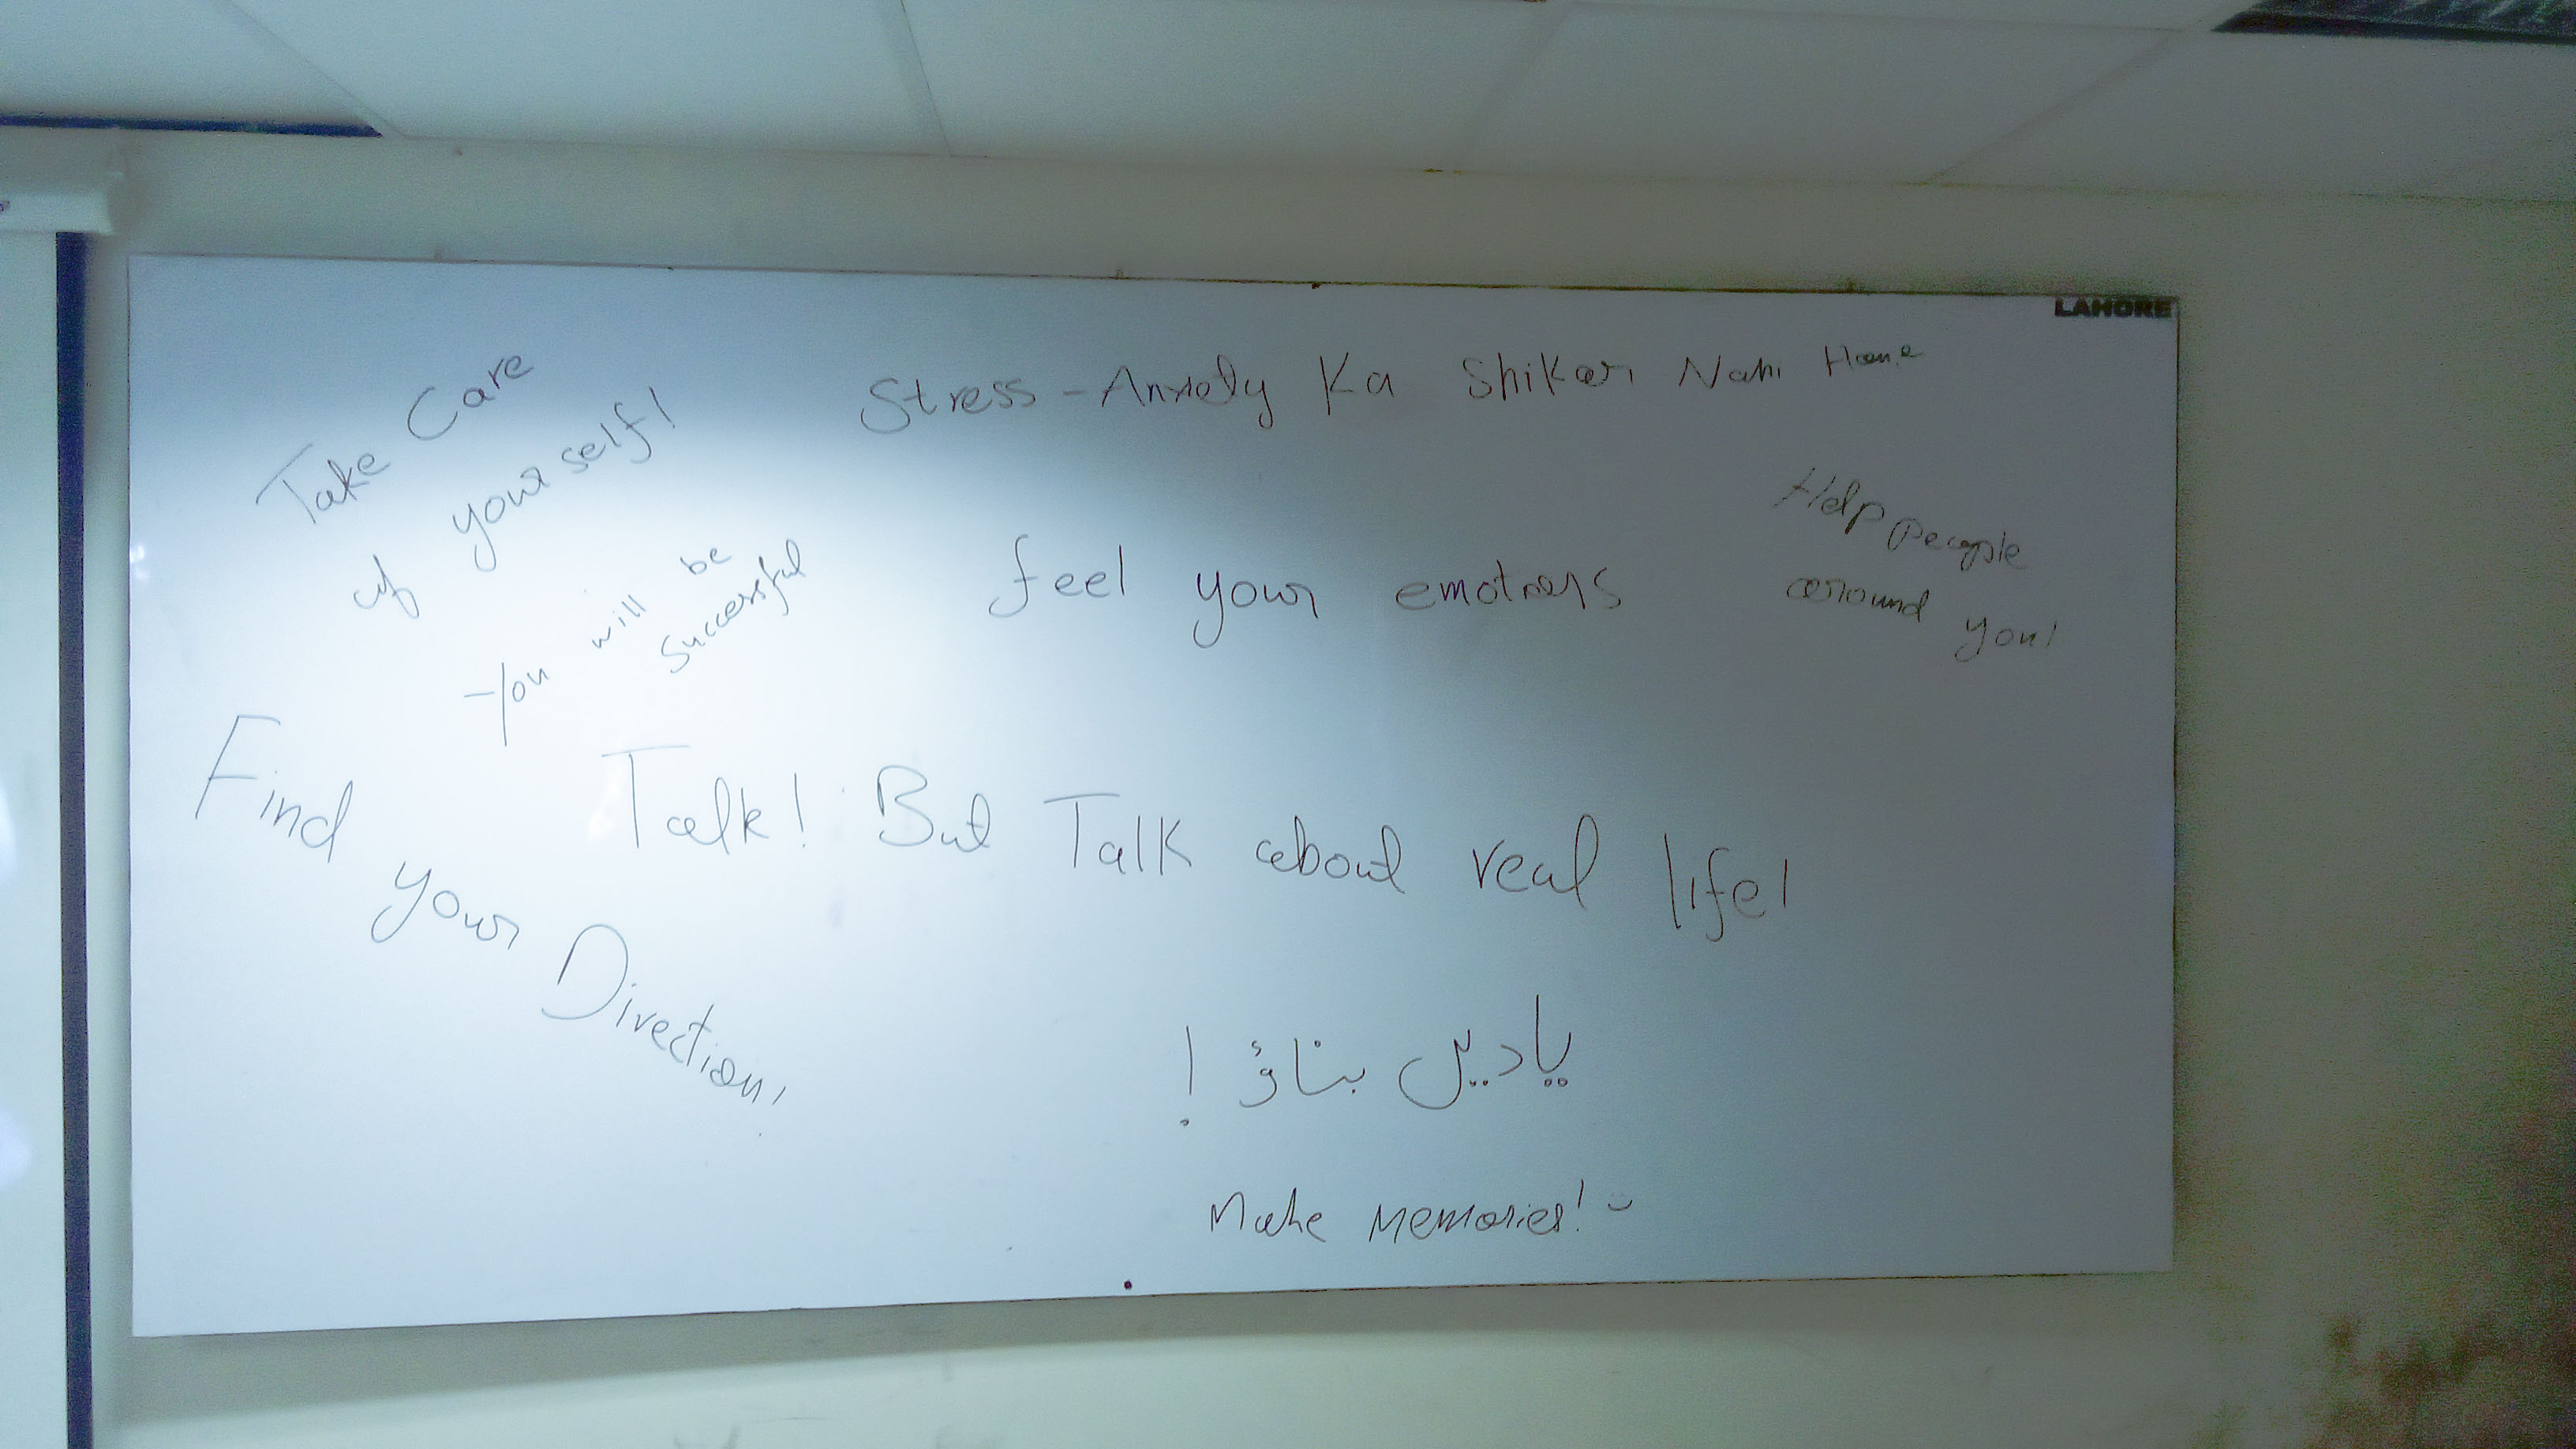 LAHORE
Stress - Anxiety Ka Shikar Nahi Hona
Take Care
of yourself!
You will be
Successful
feel your emotions
Help people
around you!
Find your Direction!
Talk! But Talk about real life!
یادیں بناؤ !
Make Memories!